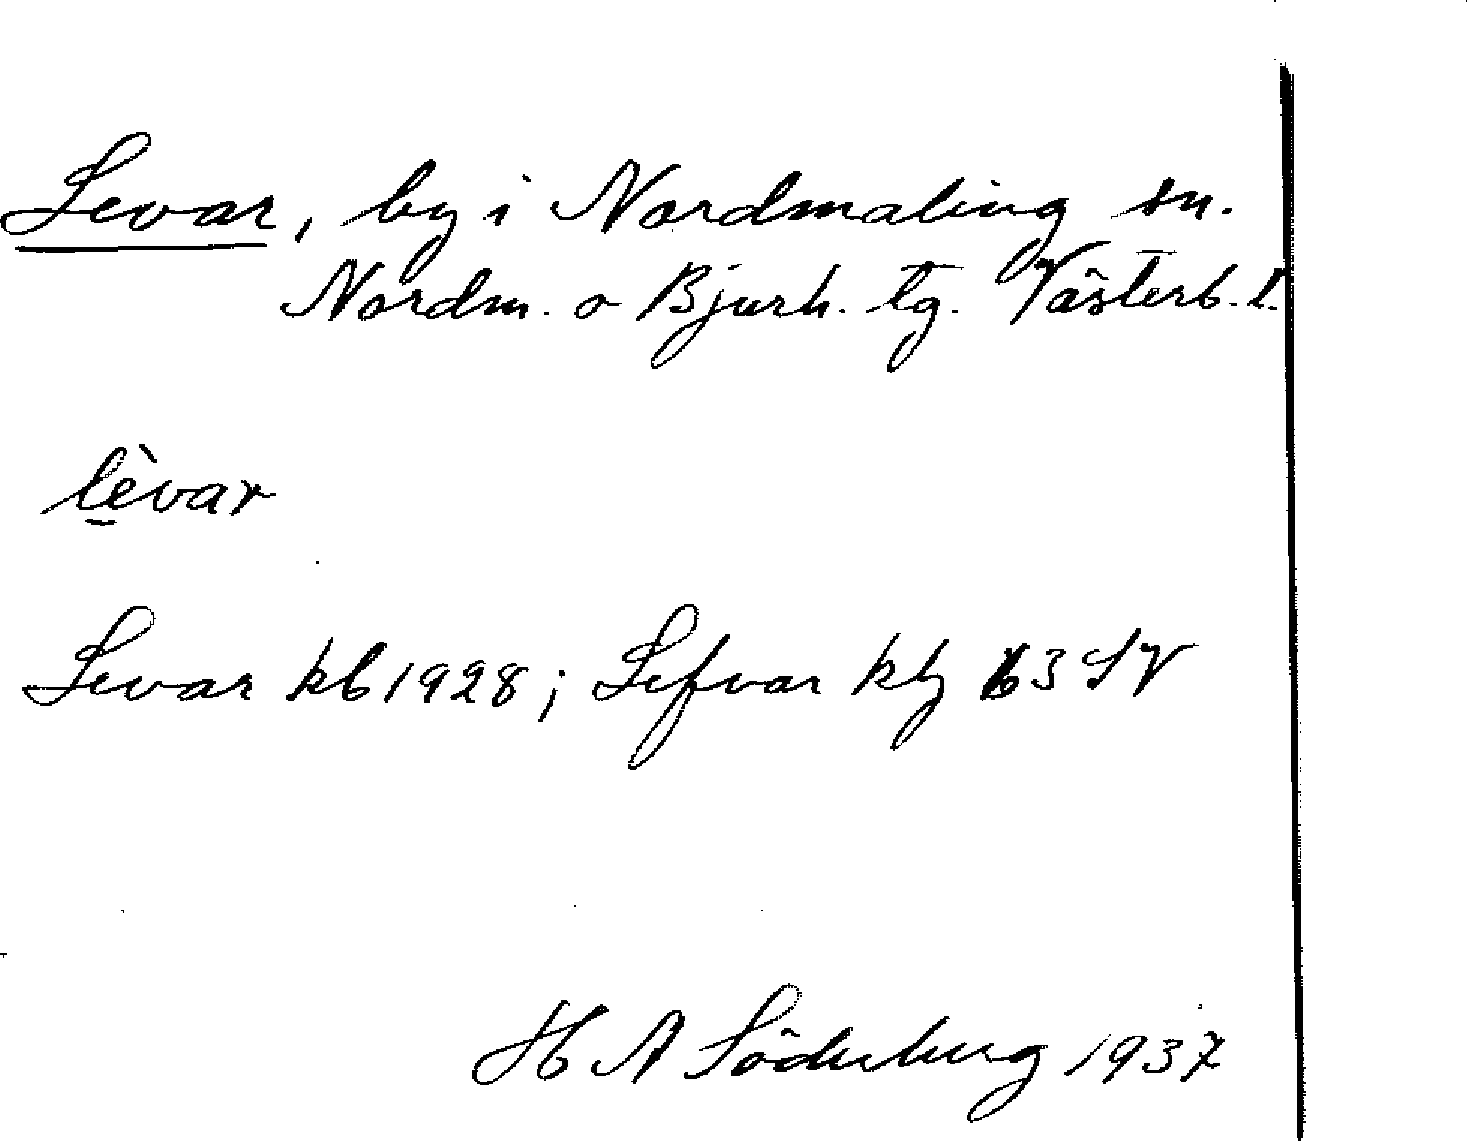 Levar, by i Nordmaling sn.
Nordm. o Bjurh. tg. Västerb. l.
lèvar
Levar kb 1928; Lefvar kbg 63 SV
H A Söderberg 1937